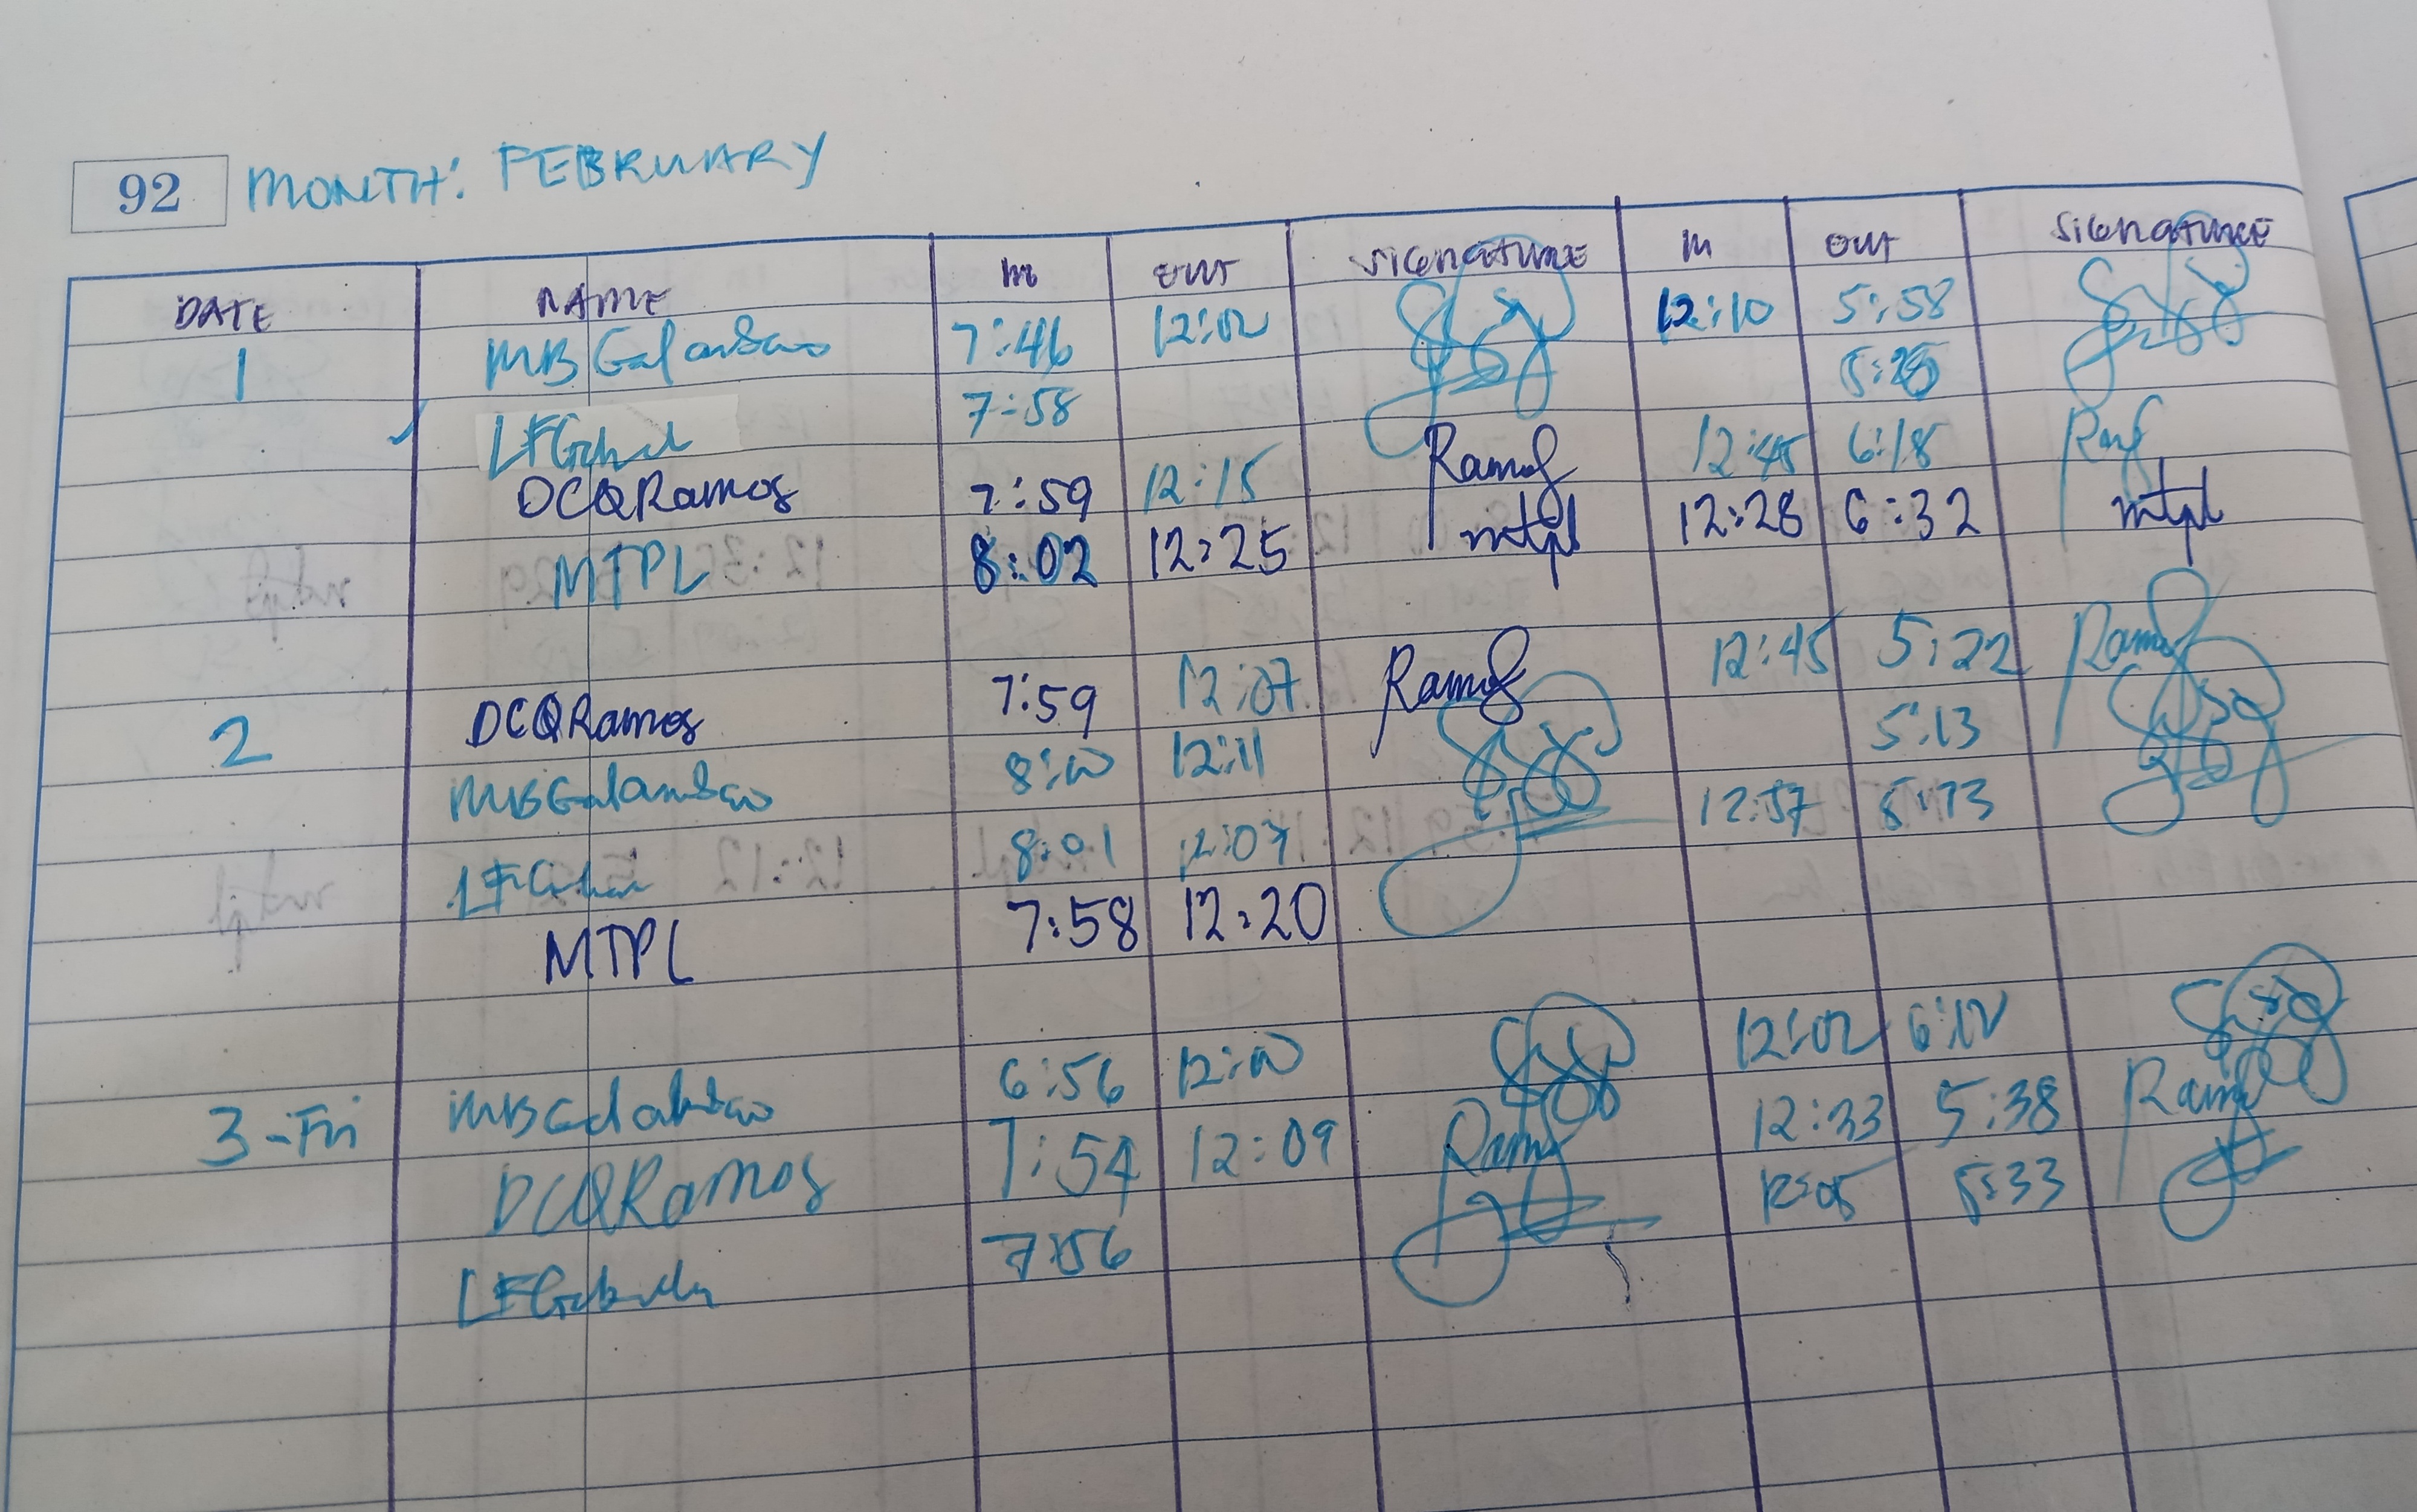 92 MONTH: FEBRUARY
DATE NAME IN OUT SIGNATURE IN OUT SIGNATURE
1 MB Galambao 7:46 12:02 12:10 5:58
7:58
DCQRamos 7:59 12:15 Ramos 12:45 6:18
MTPL 8:02 12:25 mtpl 12:28 6:32 mtpl
2 DCQRamos 7:59 12:07 Ramos 12:45 5:22 Ramos
MBGalambao 8:00 12:11 5:13
8:01 12:07 12:57 5:13
MTPL 7:58 12:20
3-Fri 6:56 12:00 12:02 6:02
DCQRamos 7:54 12:09 Ramos 12:33 5:38 Ramos
7:56 12:05 5:33